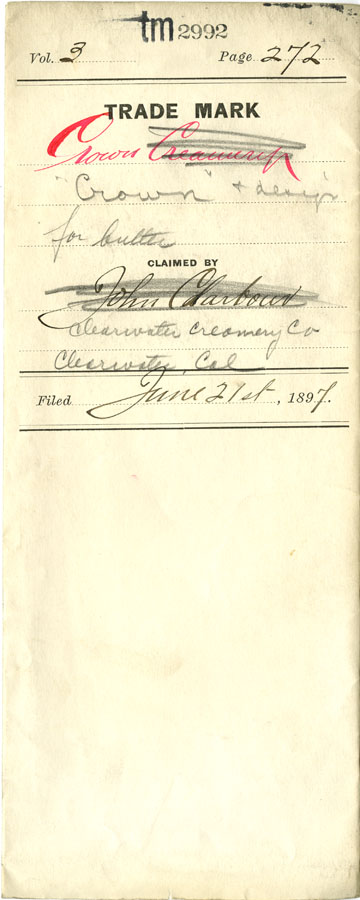 tm 2992
Vol. 3 Page 272
TRADE MARK
Crown Creamery
"Crown" + design
for butter
CLAIMED BY
John C Harbour
Clearwater Creamery Co
Clearwater, Cal
Filed June 21st, 1897.